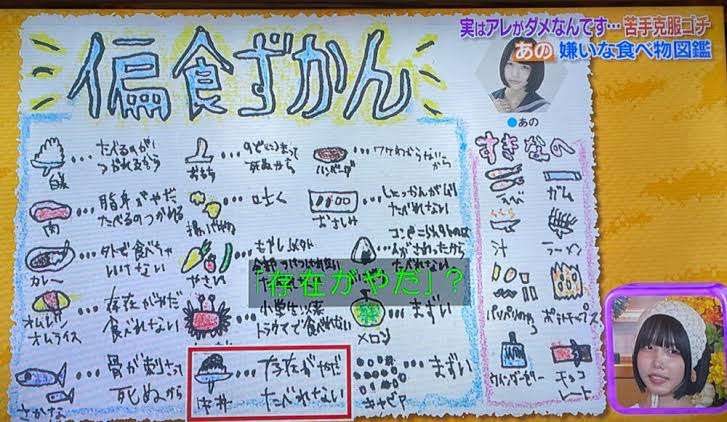 実はアレがダメなんです…苦手克服ゴチ
あの 嫌いな食べ物図鑑
●あの
偏食ずかん
白米
…たべるのが
つかれるから
おもち
…のどにつまって
死ぬから
ハンバーグ
…ワケわからないから
肉
…脂身がやだ
たべるのつかれる
揚げもの
…吐く
おさしみ
…しょっかんが
たべれない
カレー
…外で食べちゃ
いけない
やさい
…もやし以外
…コンビニ以外の
たべれない
オムレツ
オムライス
…存在がやだ
食べれない
…小学生以来
トラウマで食べれない
メロン
…まずい
さかな
…骨が刺さって
死ぬから
丼
…存在がやだ
たべれない
キャビア
…まずい
「存在がやだ」?
すきなもの
えび
ガム
汁
ラーメン
ポテトチップス
チョコ
レート